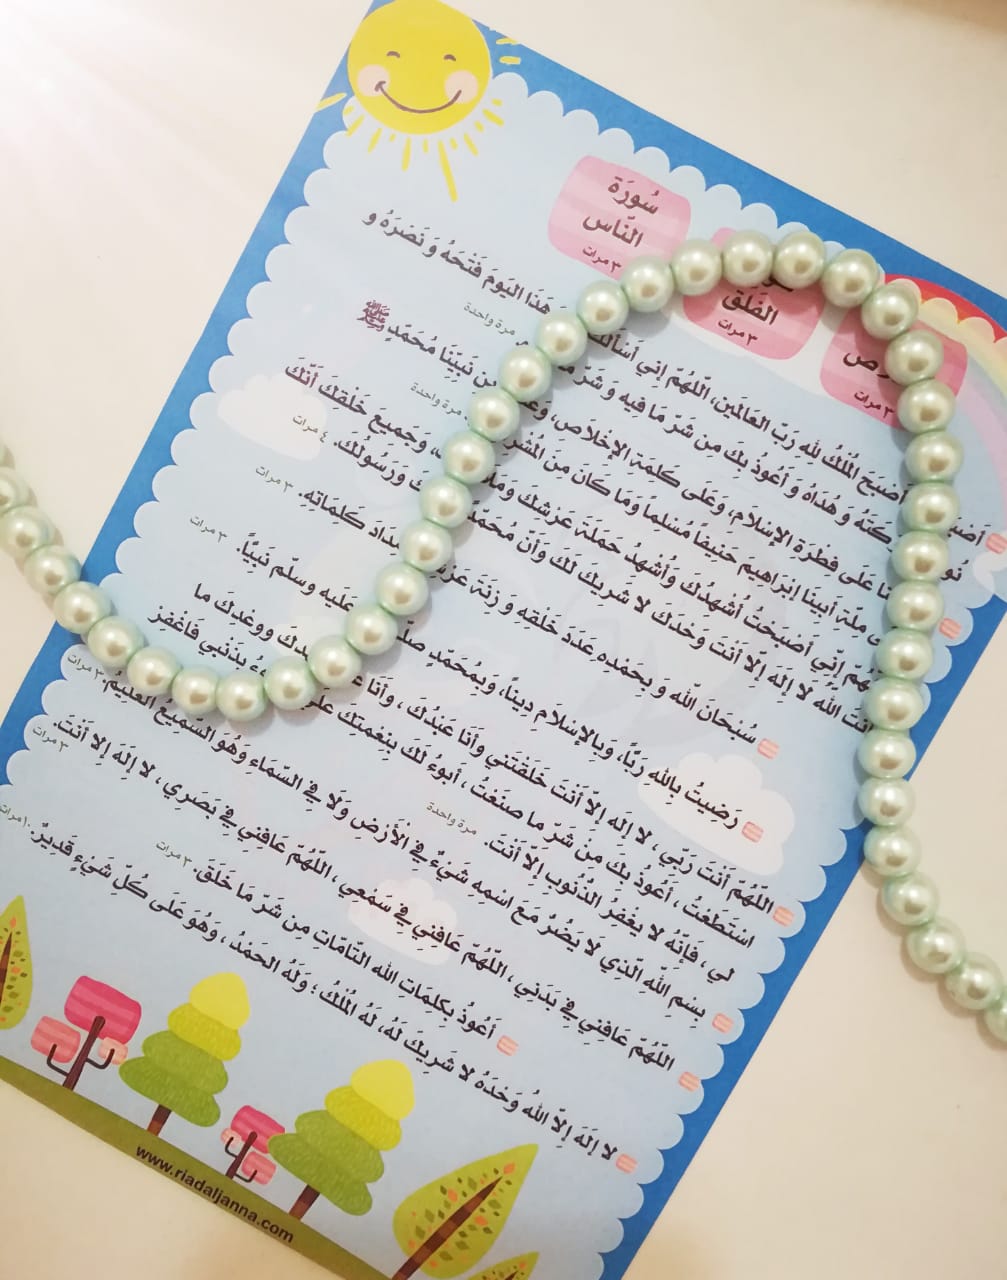 سُورَةُ
النَّاس
٣ مرات
الفَلَق
٣ مرات
٣ مرات
أَصْبَحَ المُلْكُ لله رَبِّ العَالَمِين، اللّهُمّ إِنِي أَسْأَلُكَ هَذَا اليَومَ فَتْحَهُ وَ نَصْرَهُ و
وَ هُدَاهُ وَ أَعُوذُ بكَ مِن شَرِّ مَا فِيه وَ شَرِّ مرة واحدة
عَلَى فِطْرَةِ الإِسْلامِ، وَعَلَى كَلِمَةِ الإِخْلاَصِ، نَبِيِّنَا مُحَمَّدٍ ﷺ
مِلَّةِ أَبِينَا إِبْرَاهِيمَ حَنِيفًا مُسْلِماً وَمَا كَانَ مِنَ مرة واحدة
إِنِّي أَصْبَحْتُ أُشْهِدُكَ وَأُشْهِدُ حَمَلَةَ عَرْشِكَ وَجَمِيعَ خَلْقِكَ أَنَّكَ
أَنتَ الله لا إِلَهَ إِلَّا أَنْتَ وَحْدَكَ لا شَرِيكَ لَكَ وَأَنَّ وَرَسُولُكَ. ٤ مرات
سُبْحَانَ اللَّه وَ بِحَمْدِه عَدَدَ خَلْقِهِ و زِنَةَ كَلِمَاتِهِ. ٣ مرات
رَضِيتُ بِاللَّهِ رَبًّا، وَبِالإِسْلَامِ دِينًا، وَبِمُحَمَّدٍ عَلَيه وسلّم نَبِيًّا. ٣ مرات
اللَّهُمَّ أَنْتَ رَبِّي ، لا إِلَه إِلاَّ أَنْتَ خَلَقْتَنِي وأنَا عَبْدُكَ ، وأنَا ووعْدِكَ ما
اسْتَطَعْتُ ، أَعُوذُ بكَ مِنْ شَرِّ ما صنَعْتُ ، أَبوءُ لَكَ بِنِعْمَتِكَ بذَنْبِي فَاغْفِرْ
لي ، فَإِنَّهُ لا يَغْفِرُ الذُّنُوبَ إِلاَّ أَنْتَ. مرة واحدة
بِسْمِ اللَّهِ الَّذِي لَا يَضُرُّ مَعَ اسْمِهِ شَيْءٌ فِي الْأَرْضِ وَلَا فِي السَّمَاءِ وَهُوَ السَّمِيعُ الْعَلِيمُ. ٣ مرات
اللَّهُمَّ عَافِنِي فِي بَدَنِي ، اللَّهُمَّ عَافِنِي فِي سَمْعِي ، اللَّهُمَّ عَافِنِي فِي بَصَرِي ، لَا إِلَهَ إِلَّا أَنْتَ. ٣ مرات
أَعُوذُ بِكَلِمَاتِ الله التَّامَّات مِن شَرِّ مَا خَلَقَ. ٣ مرات
لا إِلَهَ إِلاَّ اللهُ وَحْدَهُ لا شَرِيكَ لَهُ، لَهُ المُلْكُ ؛ وَلَهُ الحَمْدُ ، وَهُوَ عَلَى كُلِّ شَيْءٍ قَدِيرٌ. ١٠ مرات
www.riadaljanna.com